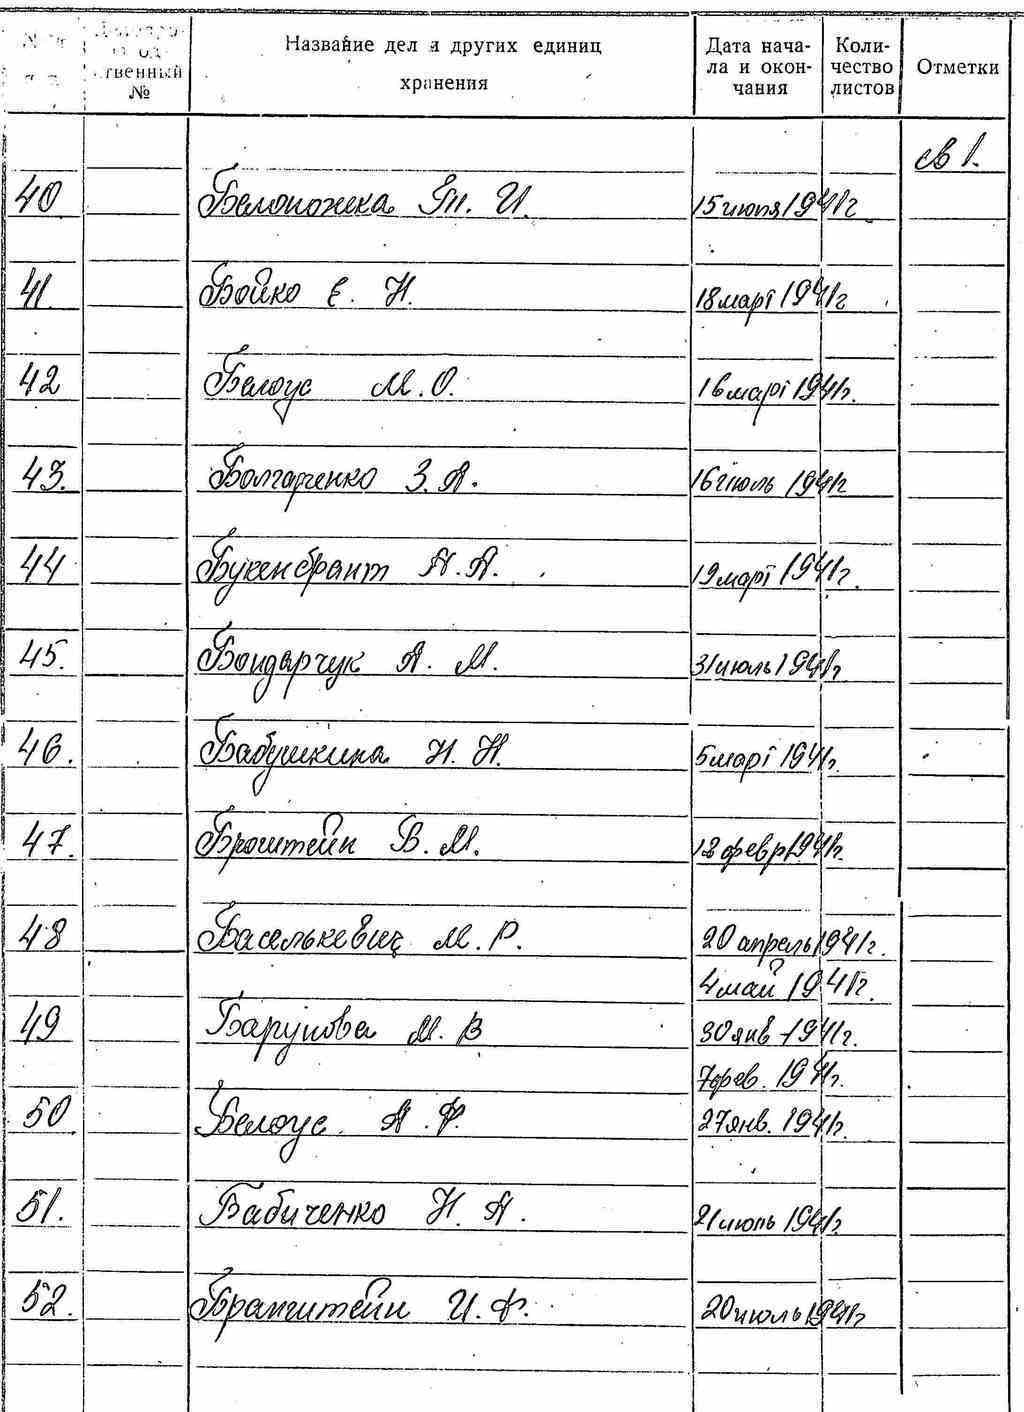 Название дел и других единиц хранения
Дата нача-
ла и окон-
чания
Коли-
чество
листов
Отметки
твенный
№
св 1.
40 Белоножка Гн. И. 15 июля 1941г
41. Бойко Е. Н. 18 март 1941г
42 Белоус М. О. 16 март 1941г.
43. Болгаренко З. А. 16 июль 1941г
44 Букенбрант А. А. 19 март 1941г.
45. Бондарчук А. М. 31 июль 1941г
46. Бабушкина Н. Н. 5 март 1941г.
47. Броштейн В. М. 12 февр 1941г.
48 Баселькевич М. Р. 20 апрель 1941г.
4 май 1941г.
49 Барунова М. В 30 янв - 1941г.
7 фев. 1941г.
50. Белоус А. Ф. 27 янв. 1941г.
51. Бабиченко Н. А. 21 июль 1941г.
52. Бранштейн И. Ф. 20 июль 1941г